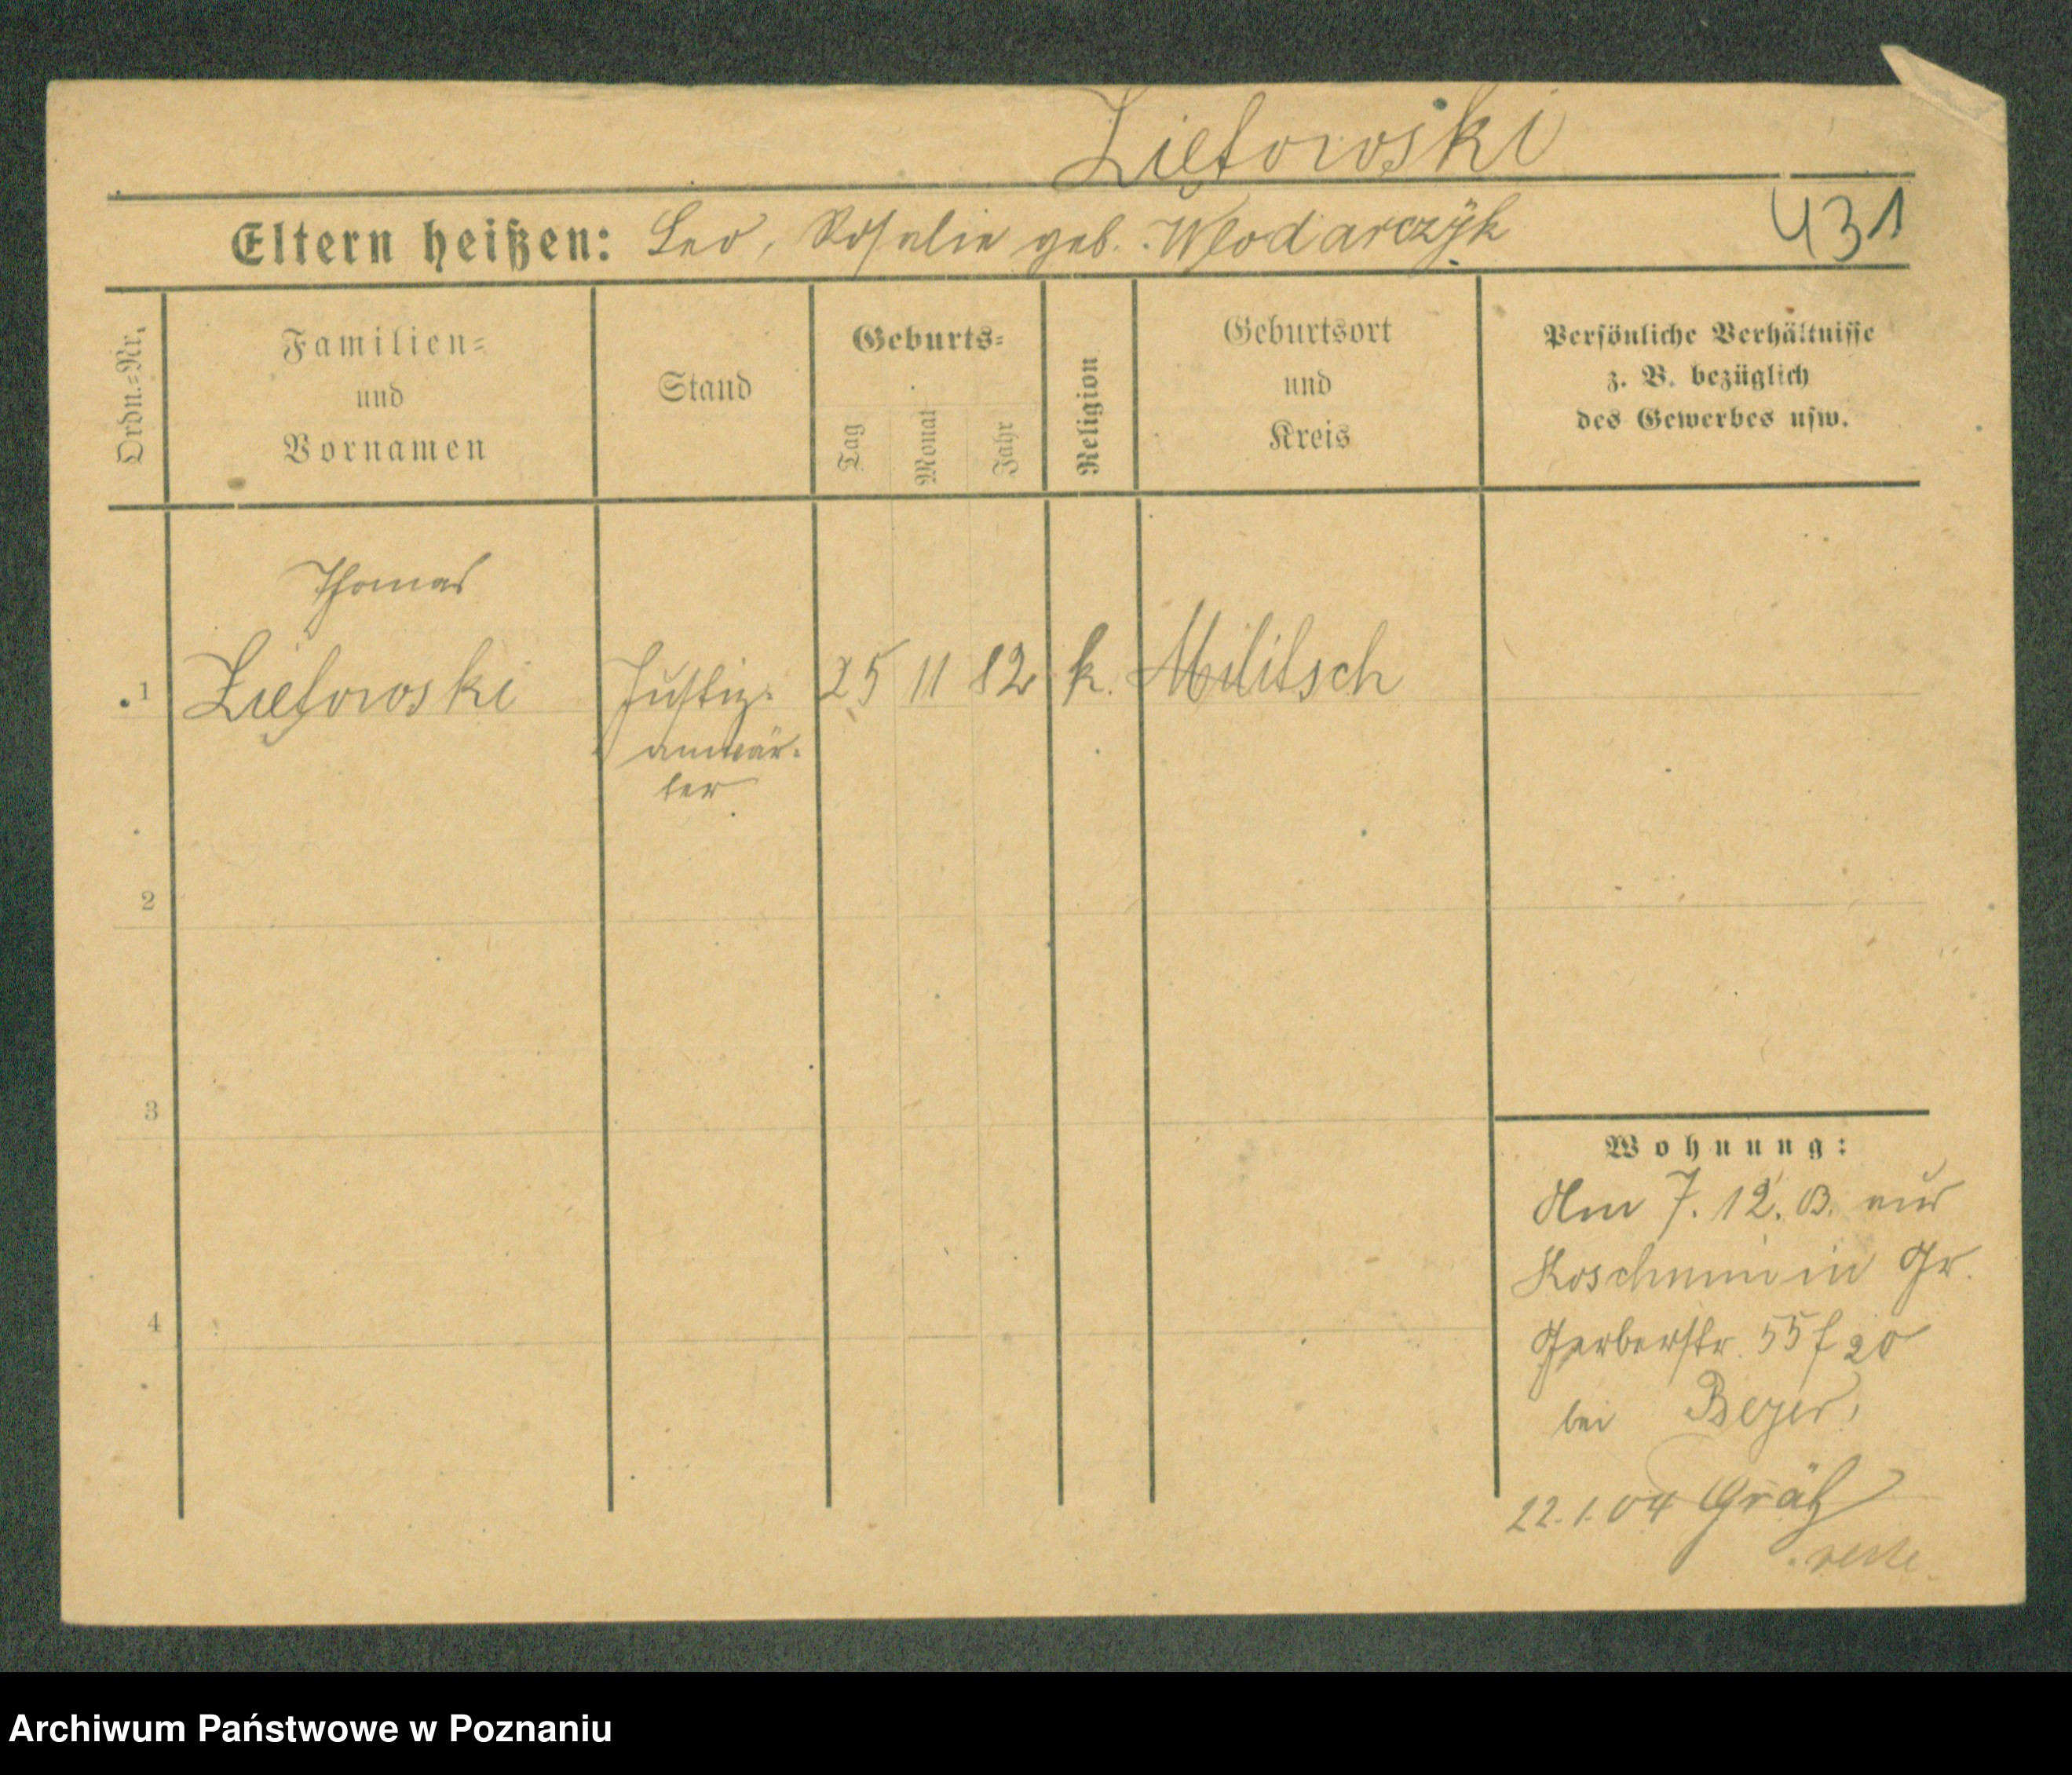 Zietowski
Eltern heißen: Leo, Rosalie geb. Wlodarczyk
431
Ordn.=Nr.
Familien=
und
Vornamen
Stand
Geburts=
Tag
Monat
Jahr
Religion
Geburtsort
und
Kreis
Persönliche Verhältnisse
z. B. bezüglich
des Gewerbes usw.
Thomas
1 Zietowski Justiz= 25 11 82 k. Militsch
anwär=
ter
2
3
4
Wohnung:
Am 7.12.03. aus
Koschmin in Gr.
Gerberstr. 55 f 20
bei Beyer,
22.1.04 Grätz
Archiwum Państwowe w Poznaniu